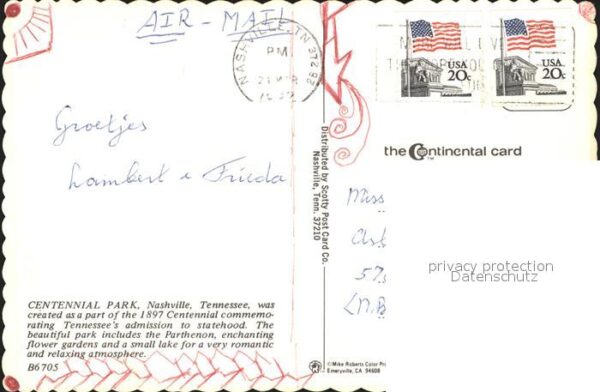 AIR-MAIL
NASHVILLE, TN 372
PM
USA
20c
USA
20c
the Continental card
TM
Groetjes
Lambert & Frieda
Distributed by Scotty Post Card Co.
Nashville, Tenn. 37210
Miss
privacy protection
Datenschutz
CENTENNIAL PARK, Nashville, Tennessee, was
created as a part of the 1897 Centennial commemo-
rating Tennessee's admission to statehood. The
beautiful park includes the Parthenon, enchanting
flower gardens and a small lake for a very romantic
and relaxing atmosphere.
B6705
©Mike Roberts Color Pr
Emeryville, CA 94608